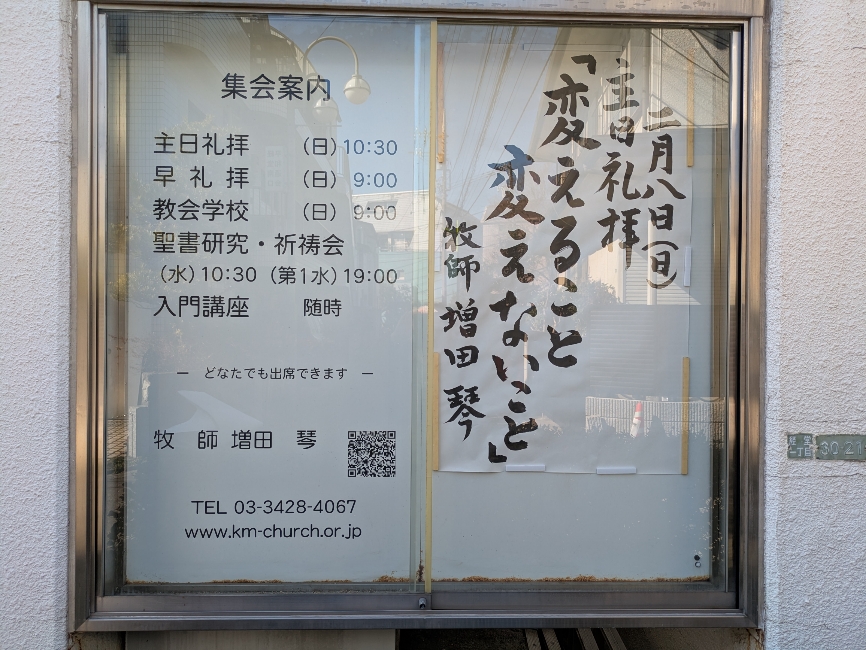 集会案内
主日礼拝 (日) 10:30
早礼拝 (日) 9:00
教会学校 (日) 9:00
聖書研究・祈祷会
(水) 10:30 (第1水) 19:00
入門講座 随時
― どなたでも出席できます ―
牧師 増田 琴
TEL 03-3428-4067
www.km-church.or.jp
二月八日(日)
主日礼拝
「変えること
変えないこと」
牧師 増田 琴
一丁目
30-21